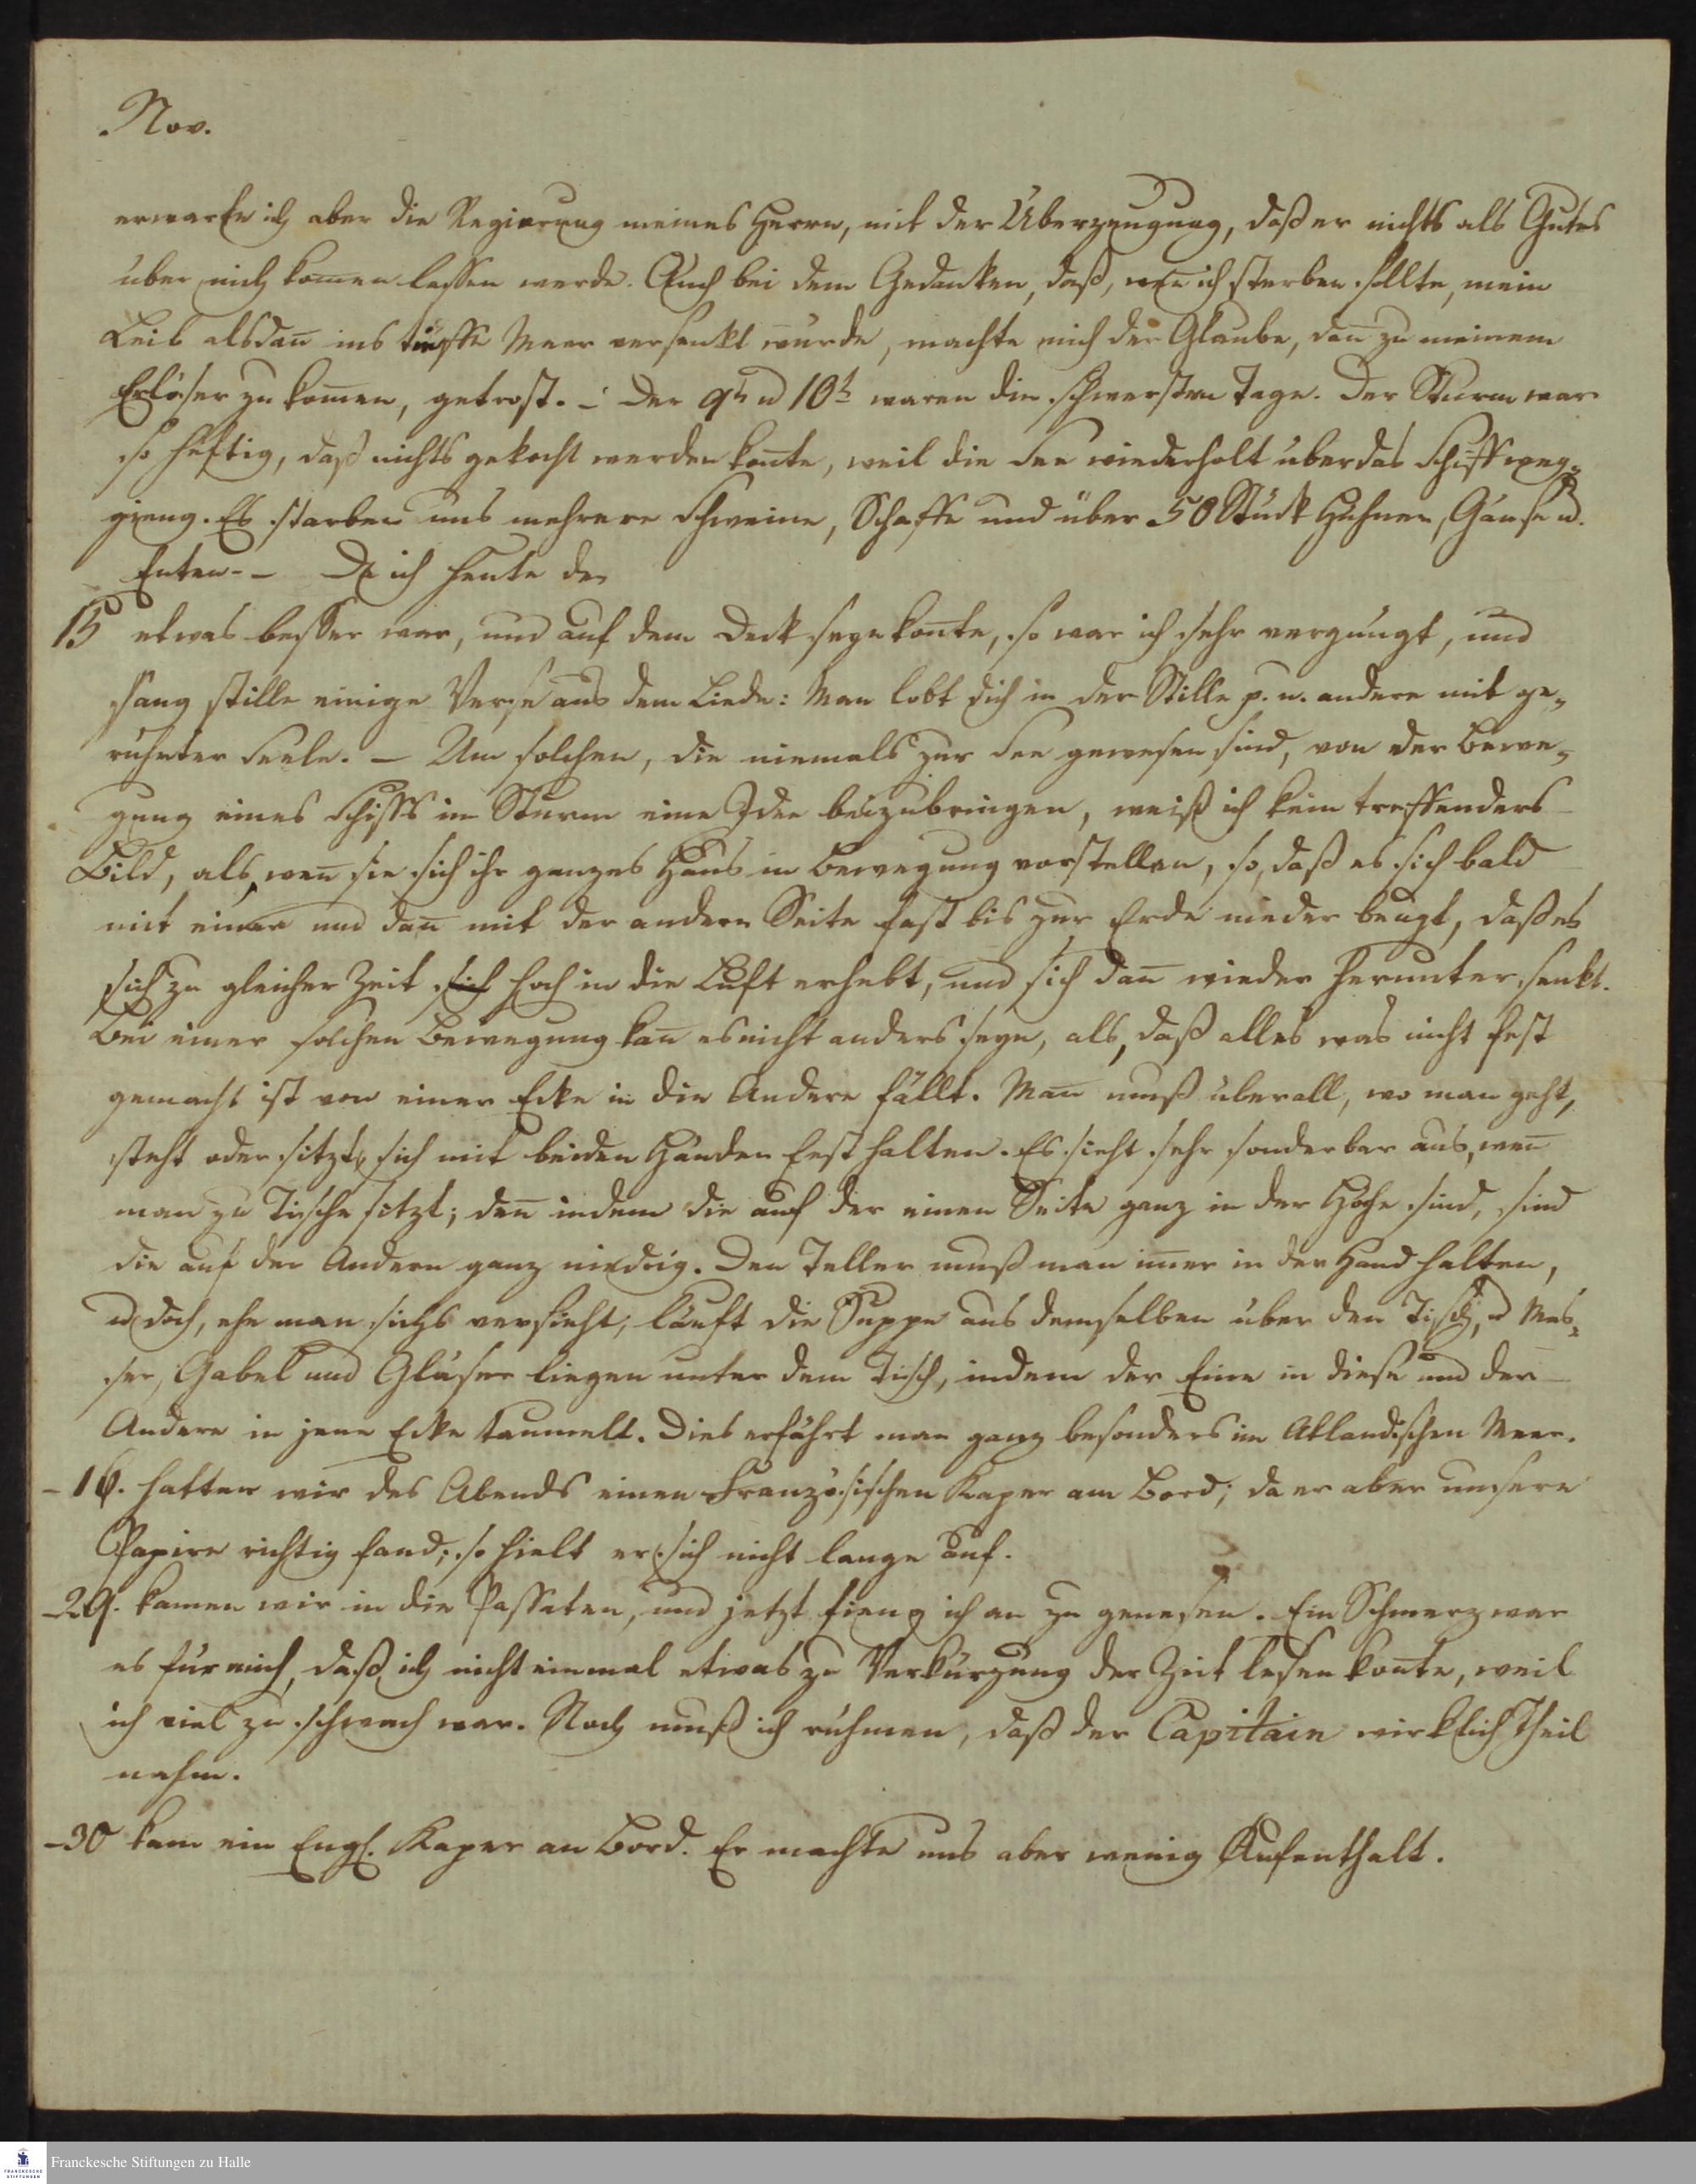 Nov.
erwarte ich aber die Regierung meines Herrn, mit der Überzeugung, daß er nichts als Gutes
über mich kom̅en lassen werde. Auch bei dem Gedanken, daß, wen̅ ich sterben sollte, mein
Leib alsdan̅ ins tiefste Meer versenkt würde, machte mich der Glaube, dan̅ zu meinem
Erlöser zu kom̅en, getrost. – Der 9t u 10t waren die schwersten Tage. Der Sturm war
so heftig, daß nichts gekocht werden kon̅te, weil die See wiederholt über das Schiff weg-
gieng. Es starben uns mehrere Schweine, Schaffe und über 50 Stück Hühner, Gänse u.
Enten – – Da ich heute den
15 etwas besser war, und auf dem Deck seyn kon̅te, so war ich sehr vergnügt, und
sang stille einige Verse aus dem Liede: Man lobt dich in der Stille p. u. andere mit ge-
rührter Seele. – Um solchen, die niemals zur See gewesen sind, von der Bewe-
gung eines Schiffs im Sturm eine Idee beizubringen, weiß ich kein treffenders
Bild, als, wen̅ sie sich ihr ganzes Haus in Bewegung vorstellen, so, daß es sich bald
mit einer und dan̅ mit der andern Seite fast bis zur Erde nieder beugt, daß es
sich zu gleicher Zeit sich hoch in die Luft erhebt, und sich dan̅ wieder herunter senkt.
Bei einer solchen Bewegung kan̅ es nicht anders seyn, als, daß alles was nicht fest
gemacht ist von einer Ecke in die Andere fällt. Man muß überall, wo man geht,
steht oder sitzt, sich mit beiden Händen fest halten. Es sieht sehr sonderbar aus, wen̅
man zu Tische sitzt; den̅ indem die auf der einen Seite ganz in der Höhe sind, sind
die auf der Andern ganz niedrig. Den Teller muß man im̅er in der Hand halten,
u doch, ehe man sichs versieht, läuft die Suppe aus demselben über den Tisch, u Mes-
ser, Gabel und Gläser liegen unter dem Tisch, indem der Eine in diese und der
Andere in jene Ecke taumelt. Dies erfährt man ganz besonders im Atlandischen Meer.
– 16. hatten wir des Abends einen Französischen Kaper am Bord; da er aber unsere
Papire richtig fand; so hielt er sich nicht lange auf.
– 29. kamen wir in die Passaten, und jetzt fieng ich an zu genesen. Ein Schmerz war
es für mich, daß ich nicht einmal etwas zu Verkürzung der Zeit lesen kon̅te, weil
ich viel zu schwach war. Noch muß ich rühmen, daß der Capitain wirklich Theil
nahm.
– 30 kam ein Engl. Kaper an Bord. Er machte uns aber wenig Aufenthalt.
Franckesche Stiftungen zu Halle